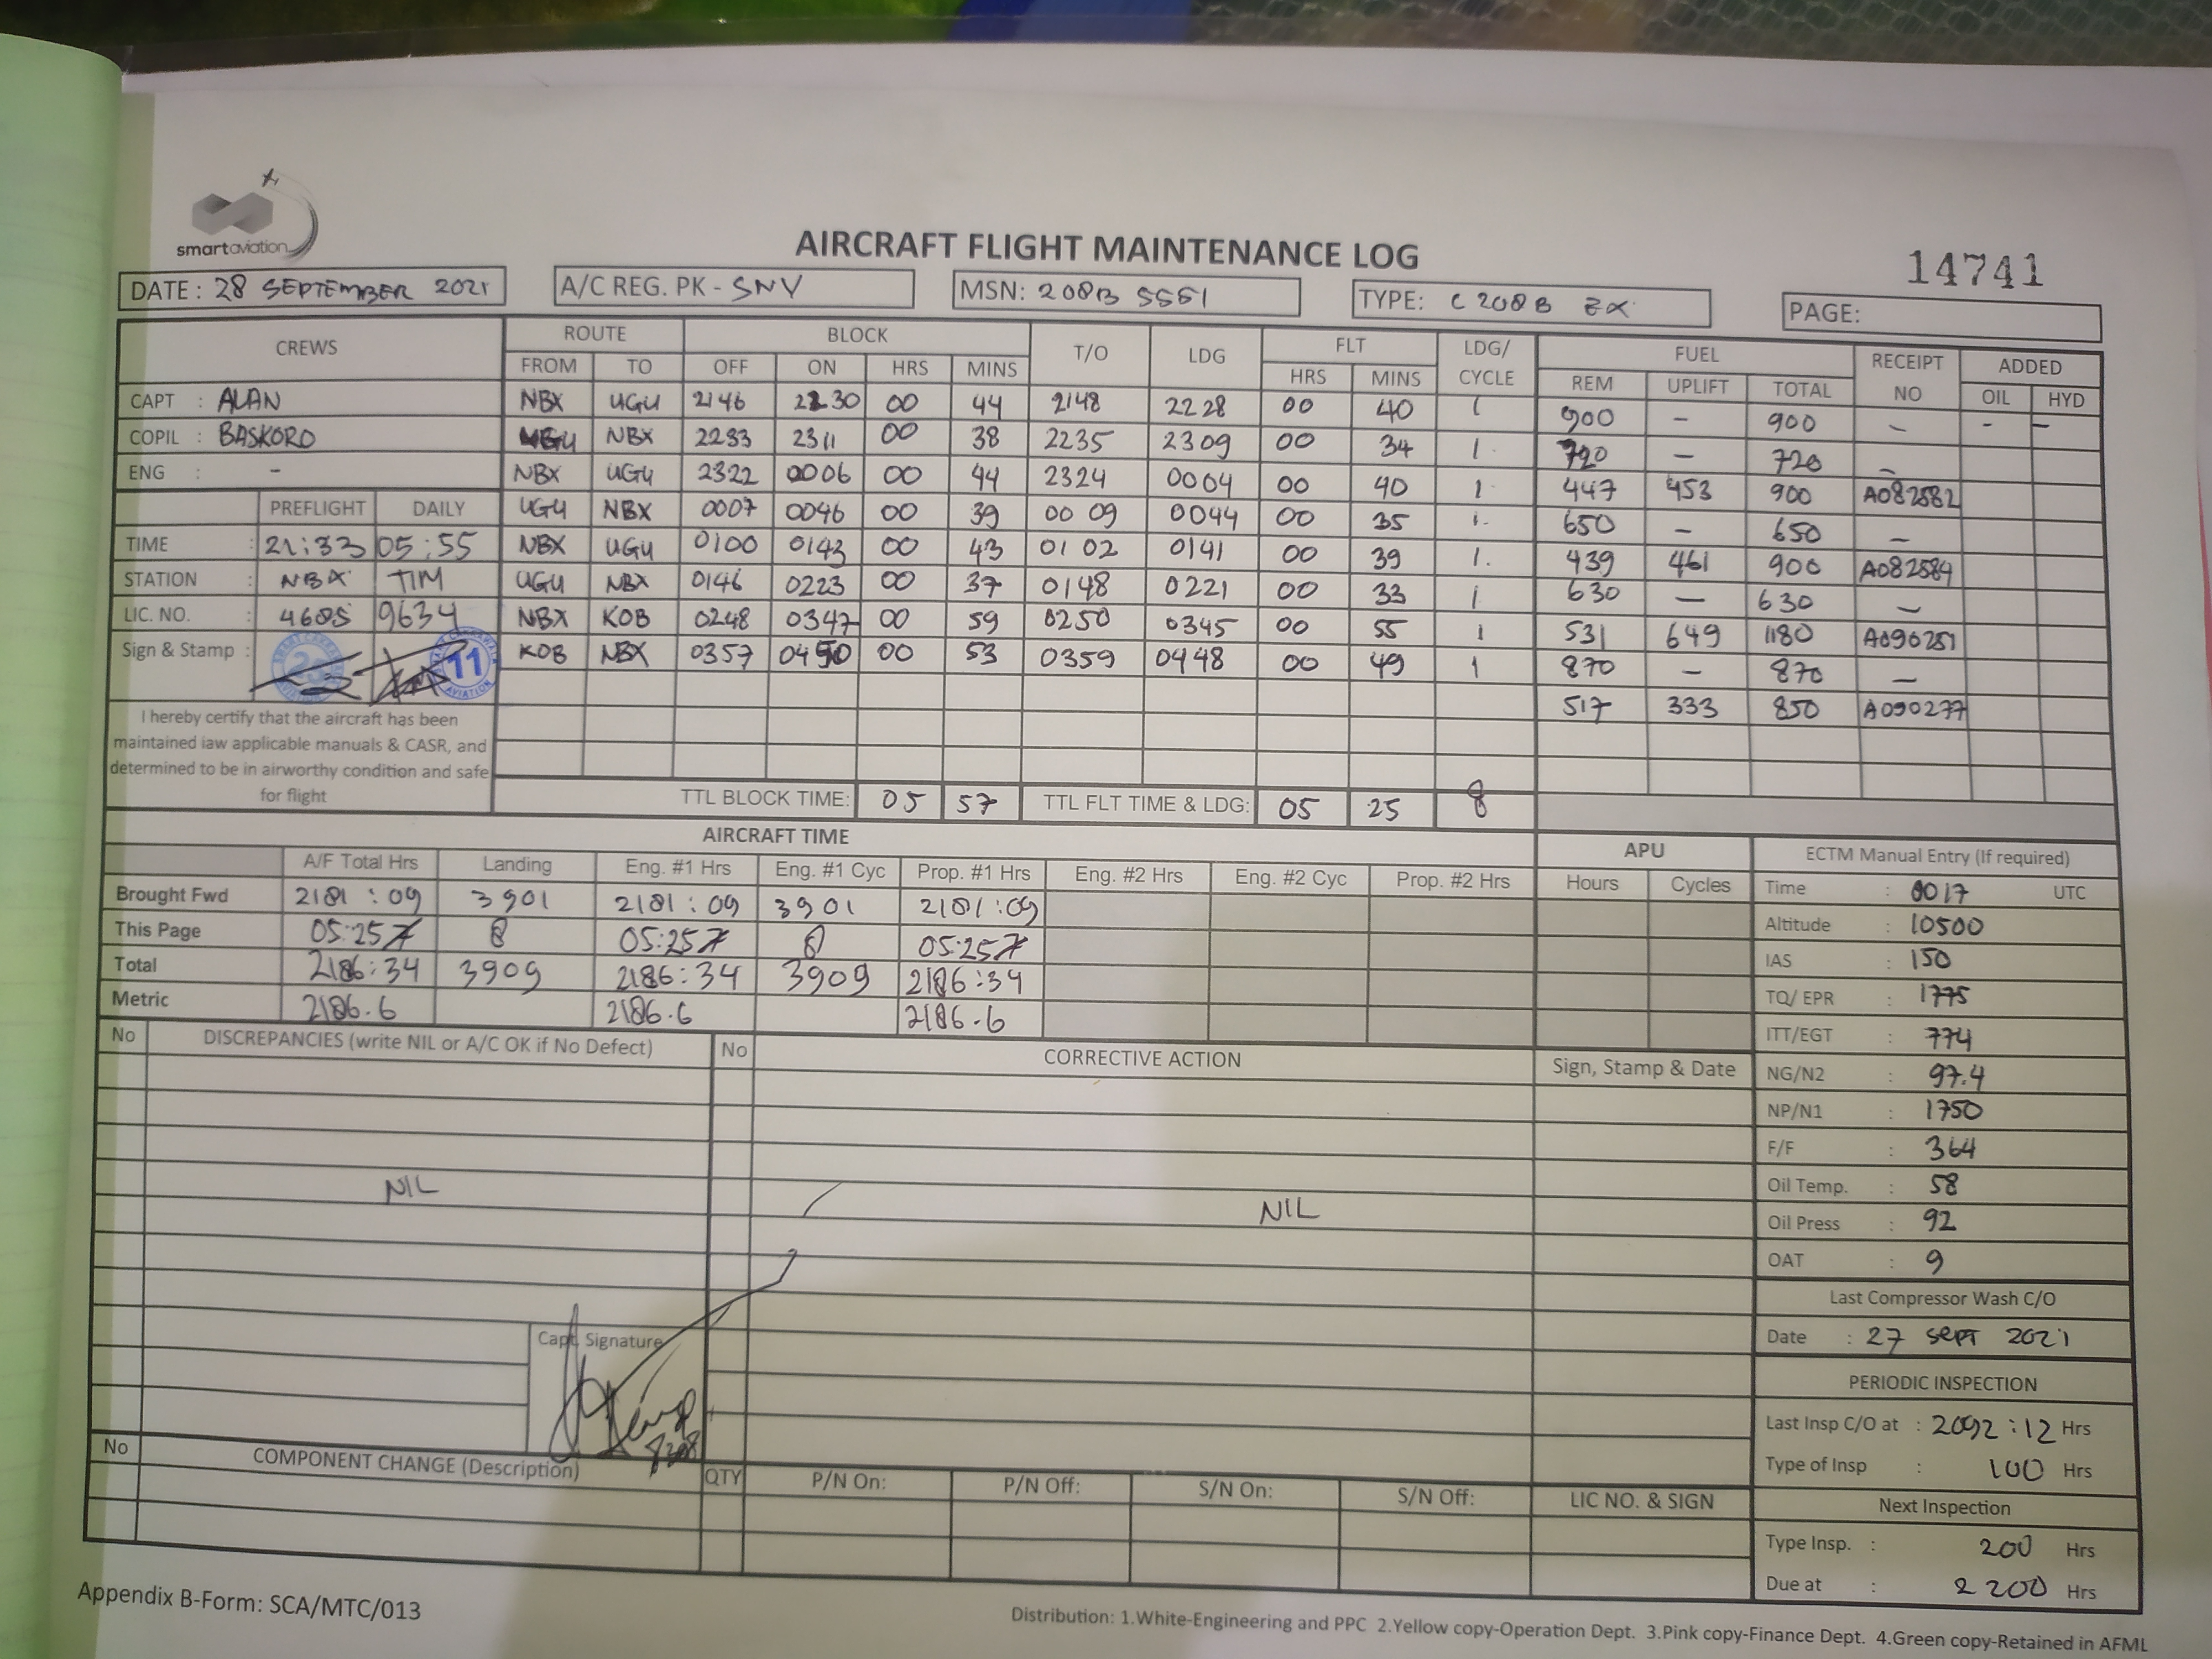 smartaviation
AIRCRAFT FLIGHT MAINTENANCE LOG
14741
DATE : 28 SEPTEMBER 2021
A/C REG. PK - SNV
MSN: 208B 5551
TYPE: C 208 B EX
PAGE:
CREWS ROUTE BLOCK T/O LDG FLT LDG/ CYCLE FUEL RECEIPT NO ADDED
FROM TO OFF ON HRS MINS HRS MINS REM UPLIFT TOTAL OIL HYD
CAPT : ALAN NBX UGU 2146 2230 00 44 2148 2228 00 40 1 900 - 900 - - -
COPIL : BASKORO UGU NBX 2233 2311 00 38 2235 2309 00 34 1 720 - 720 -
ENG : - NBX UGU 2322 0006 00 44 2324 0004 00 40 1 447 453 900 A082582
PREFLIGHT DAILY UGU NBX 0007 0046 00 39 0009 0044 00 35 1 650 - 650 -
TIME : 21:33 05:55 NBX UGU 0100 0143 00 43 0102 0141 00 39 1 439 461 900 A082584
STATION : NBX TIM UGU NBX 0146 0223 00 37 0148 0221 00 33 1 630 - 630 -
LIC. NO. : 4685 9634 NBX KOB 0248 0347 00 59 0250 0345 00 55 1 531 649 1180 A090251
Sign & Stamp : 25 11 AVIATION KOB NBX 0357 0450 00 53 0359 0448 00 49 1 870 - 870 -
517 333 850 A090277
I hereby certify that the aircraft has been
maintained iaw applicable manuals & CASR, and
determined to be in airworthy condition and safe
for flight
TTL BLOCK TIME: 05 57 TTL FLT TIME & LDG: 05 25 8
AIRCRAFT TIME APU
A/F Total Hrs Landing Eng. #1 Hrs Eng. #1 Cyc Prop. #1 Hrs Eng. #2 Hrs Eng. #2 Cyc Prop. #2 Hrs Hours Cycles
Brought Fwd 2181:09 3901 2181:09 3901 2181:09
This Page 05:25 8 05:25 8 05:25
Total 2186:34 3909 2186:34 3909 2186:34
Metric 2186.6 2186.6 2186.6
ECTM Manual Entry (If required)
Time : 0017 UTC
Altitude : 10500
IAS : 150
TQ/ EPR : 1775
ITT/EGT : 774
NG/N2 : 97.4
NP/N1 : 1750
F/F : 364
Oil Temp. : 58
Oil Press : 92
OAT : 9
Last Compressor Wash C/O
Date : 27 SEPT 2021
PERIODIC INSPECTION
Last Insp C/O at : 2092:12 Hrs
Type of Insp : 100 Hrs
Next Inspection
Type Insp. : 200 Hrs
Due at : 2200 Hrs
No DISCREPANCIES (write NIL or A/C OK if No Defect) No CORRECTIVE ACTION Sign, Stamp & Date
NIL NIL
Capt. Signature
No COMPONENT CHANGE (Description) QTY P/N On: P/N Off: S/N On: S/N Off: LIC NO. & SIGN
Appendix B-Form: SCA/MTC/013
Distribution: 1.White-Engineering and PPC 2.Yellow copy-Operation Dept. 3.Pink copy-Finance Dept. 4.Green copy-Retained in AFML